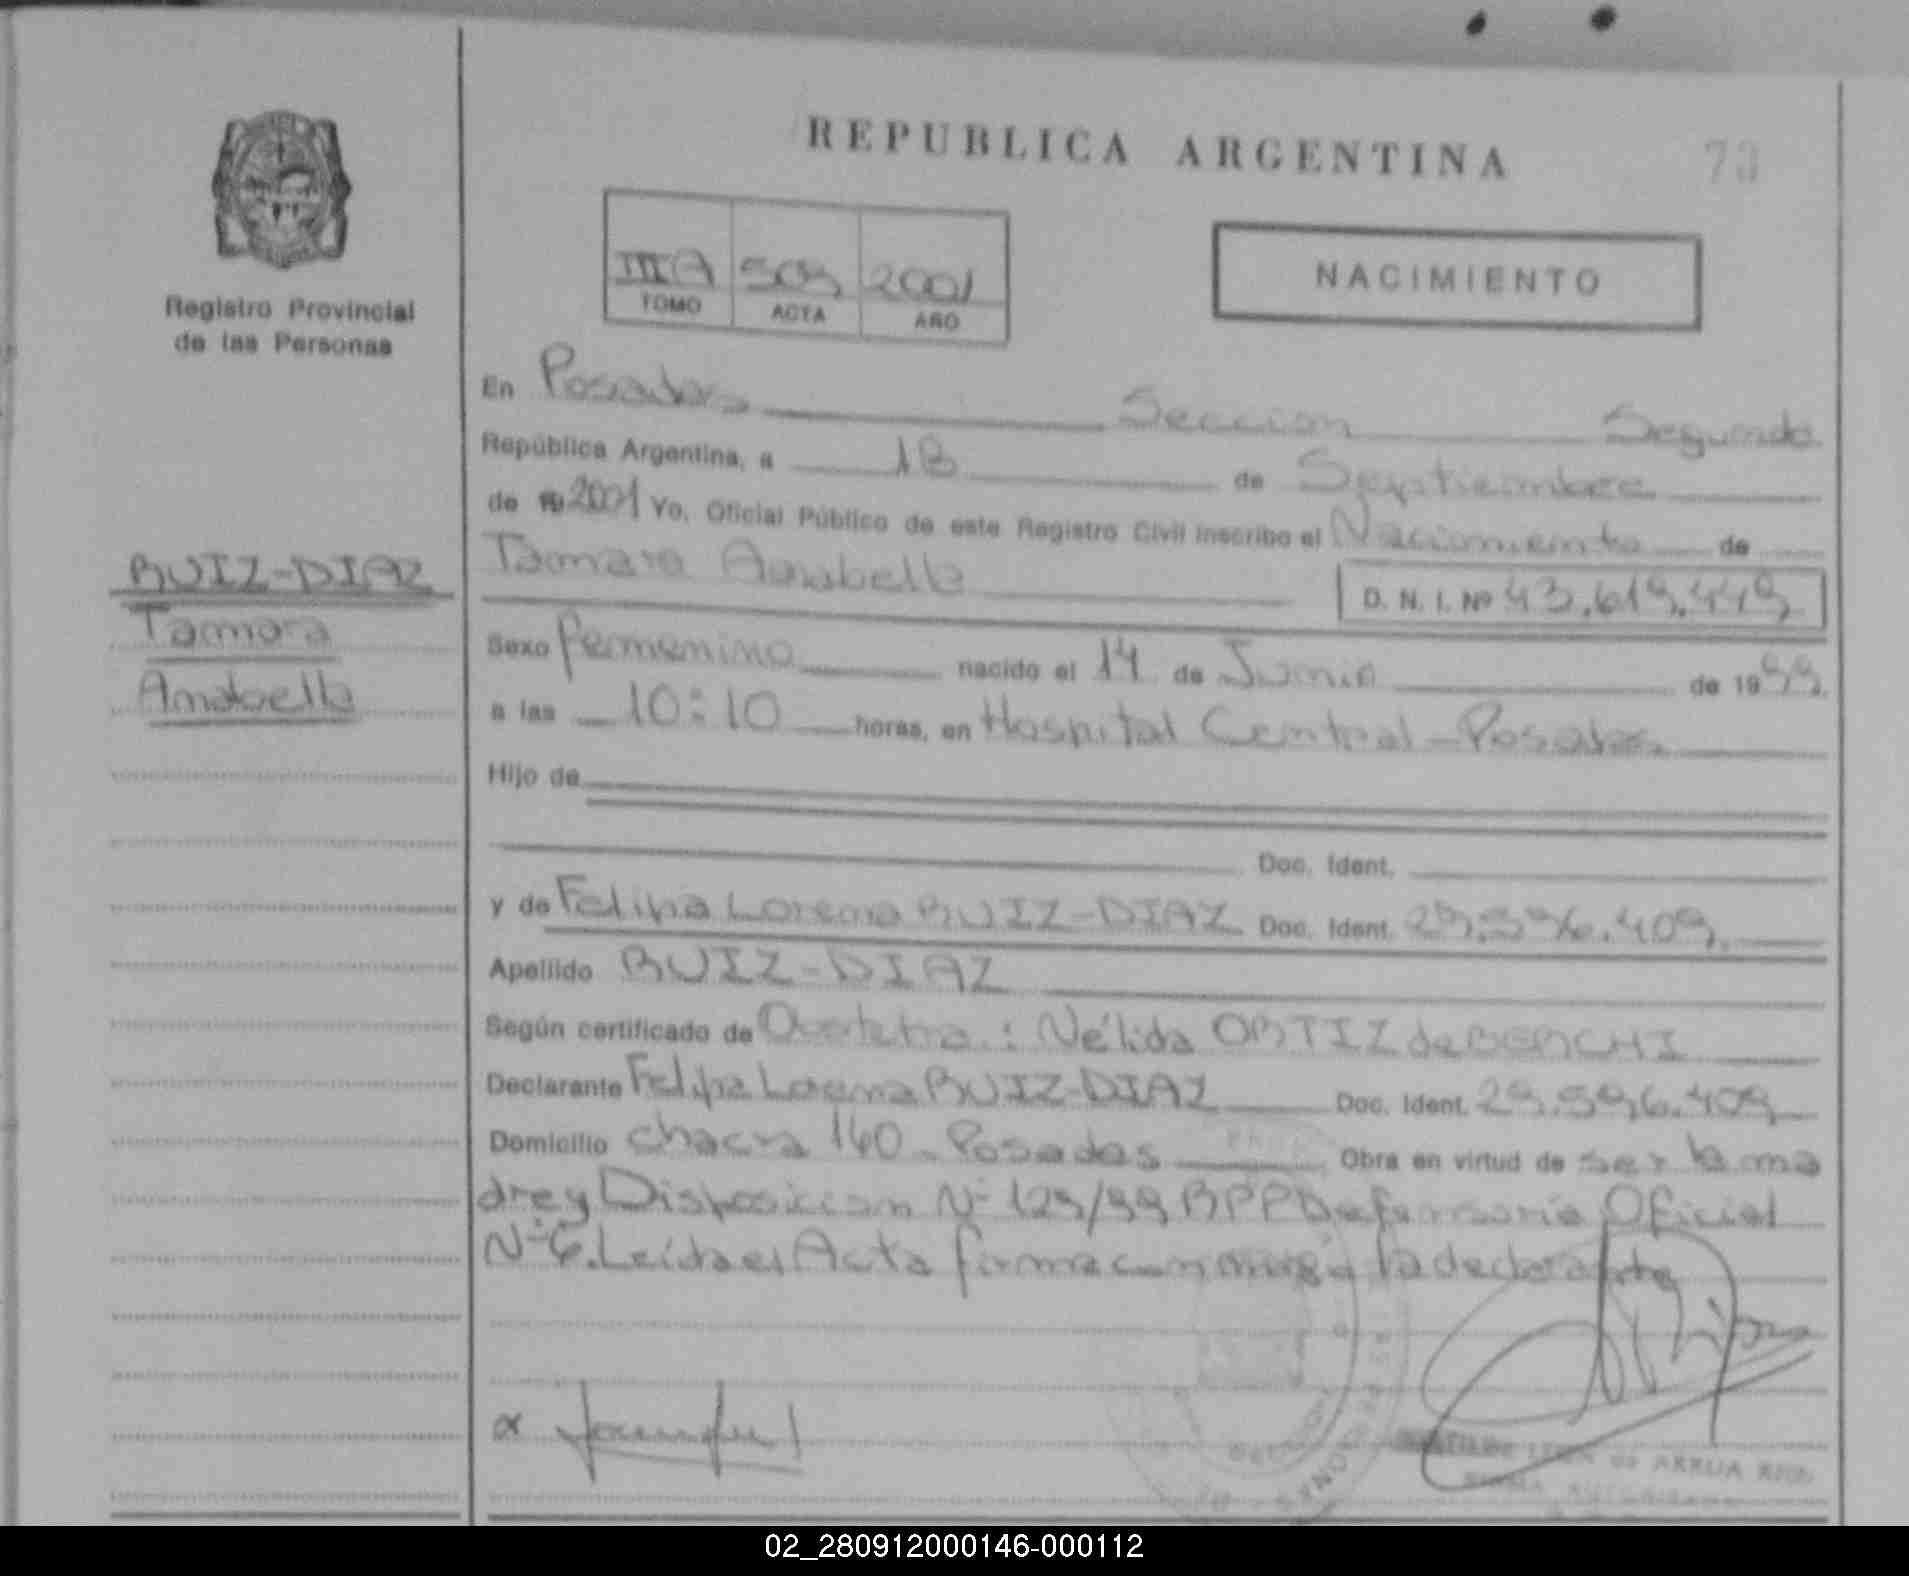 REPUBLICA ARGENTINA
73
Registro Provincial
de las Personas
III A 503 2001
TOMO ACTA AÑO
NACIMIENTO
En Posadas Sección Segunda
República Argentina, a 18 de Septiembre
de 19 2001 Yo, Oficial Público de este Registro Civil inscribo el Nacimiento de
Tamara Anabella D. N. I. Nº 43.619.449
RUIZ-DIAZ
Tamara
Anabella
Sexo femenino nacido el 14 de Junio de 1999
a las 10:10 horas, en Hospital Central - Posadas
Hijo de
Doc. Ident.
y de Felipa Lorena RUIZ-DIAZ Doc. Ident. 29.596.409
Apellido RUIZ-DIAZ
Según certificado de Obstetra: Nélida ORTIZ de BERCHI
Declarante Felipa Lorena RUIZ-DIAZ Doc. Ident. 29.596.409
Domicilio chacra 140 - Posados Obra en virtud de ser la ma
dre y Disposicion Nº 129/99 RPP Defensoría Oficial
Nº 6. Leída el Acta firma conmigo la declarante
DE ARRUA
02_280912000146-000112